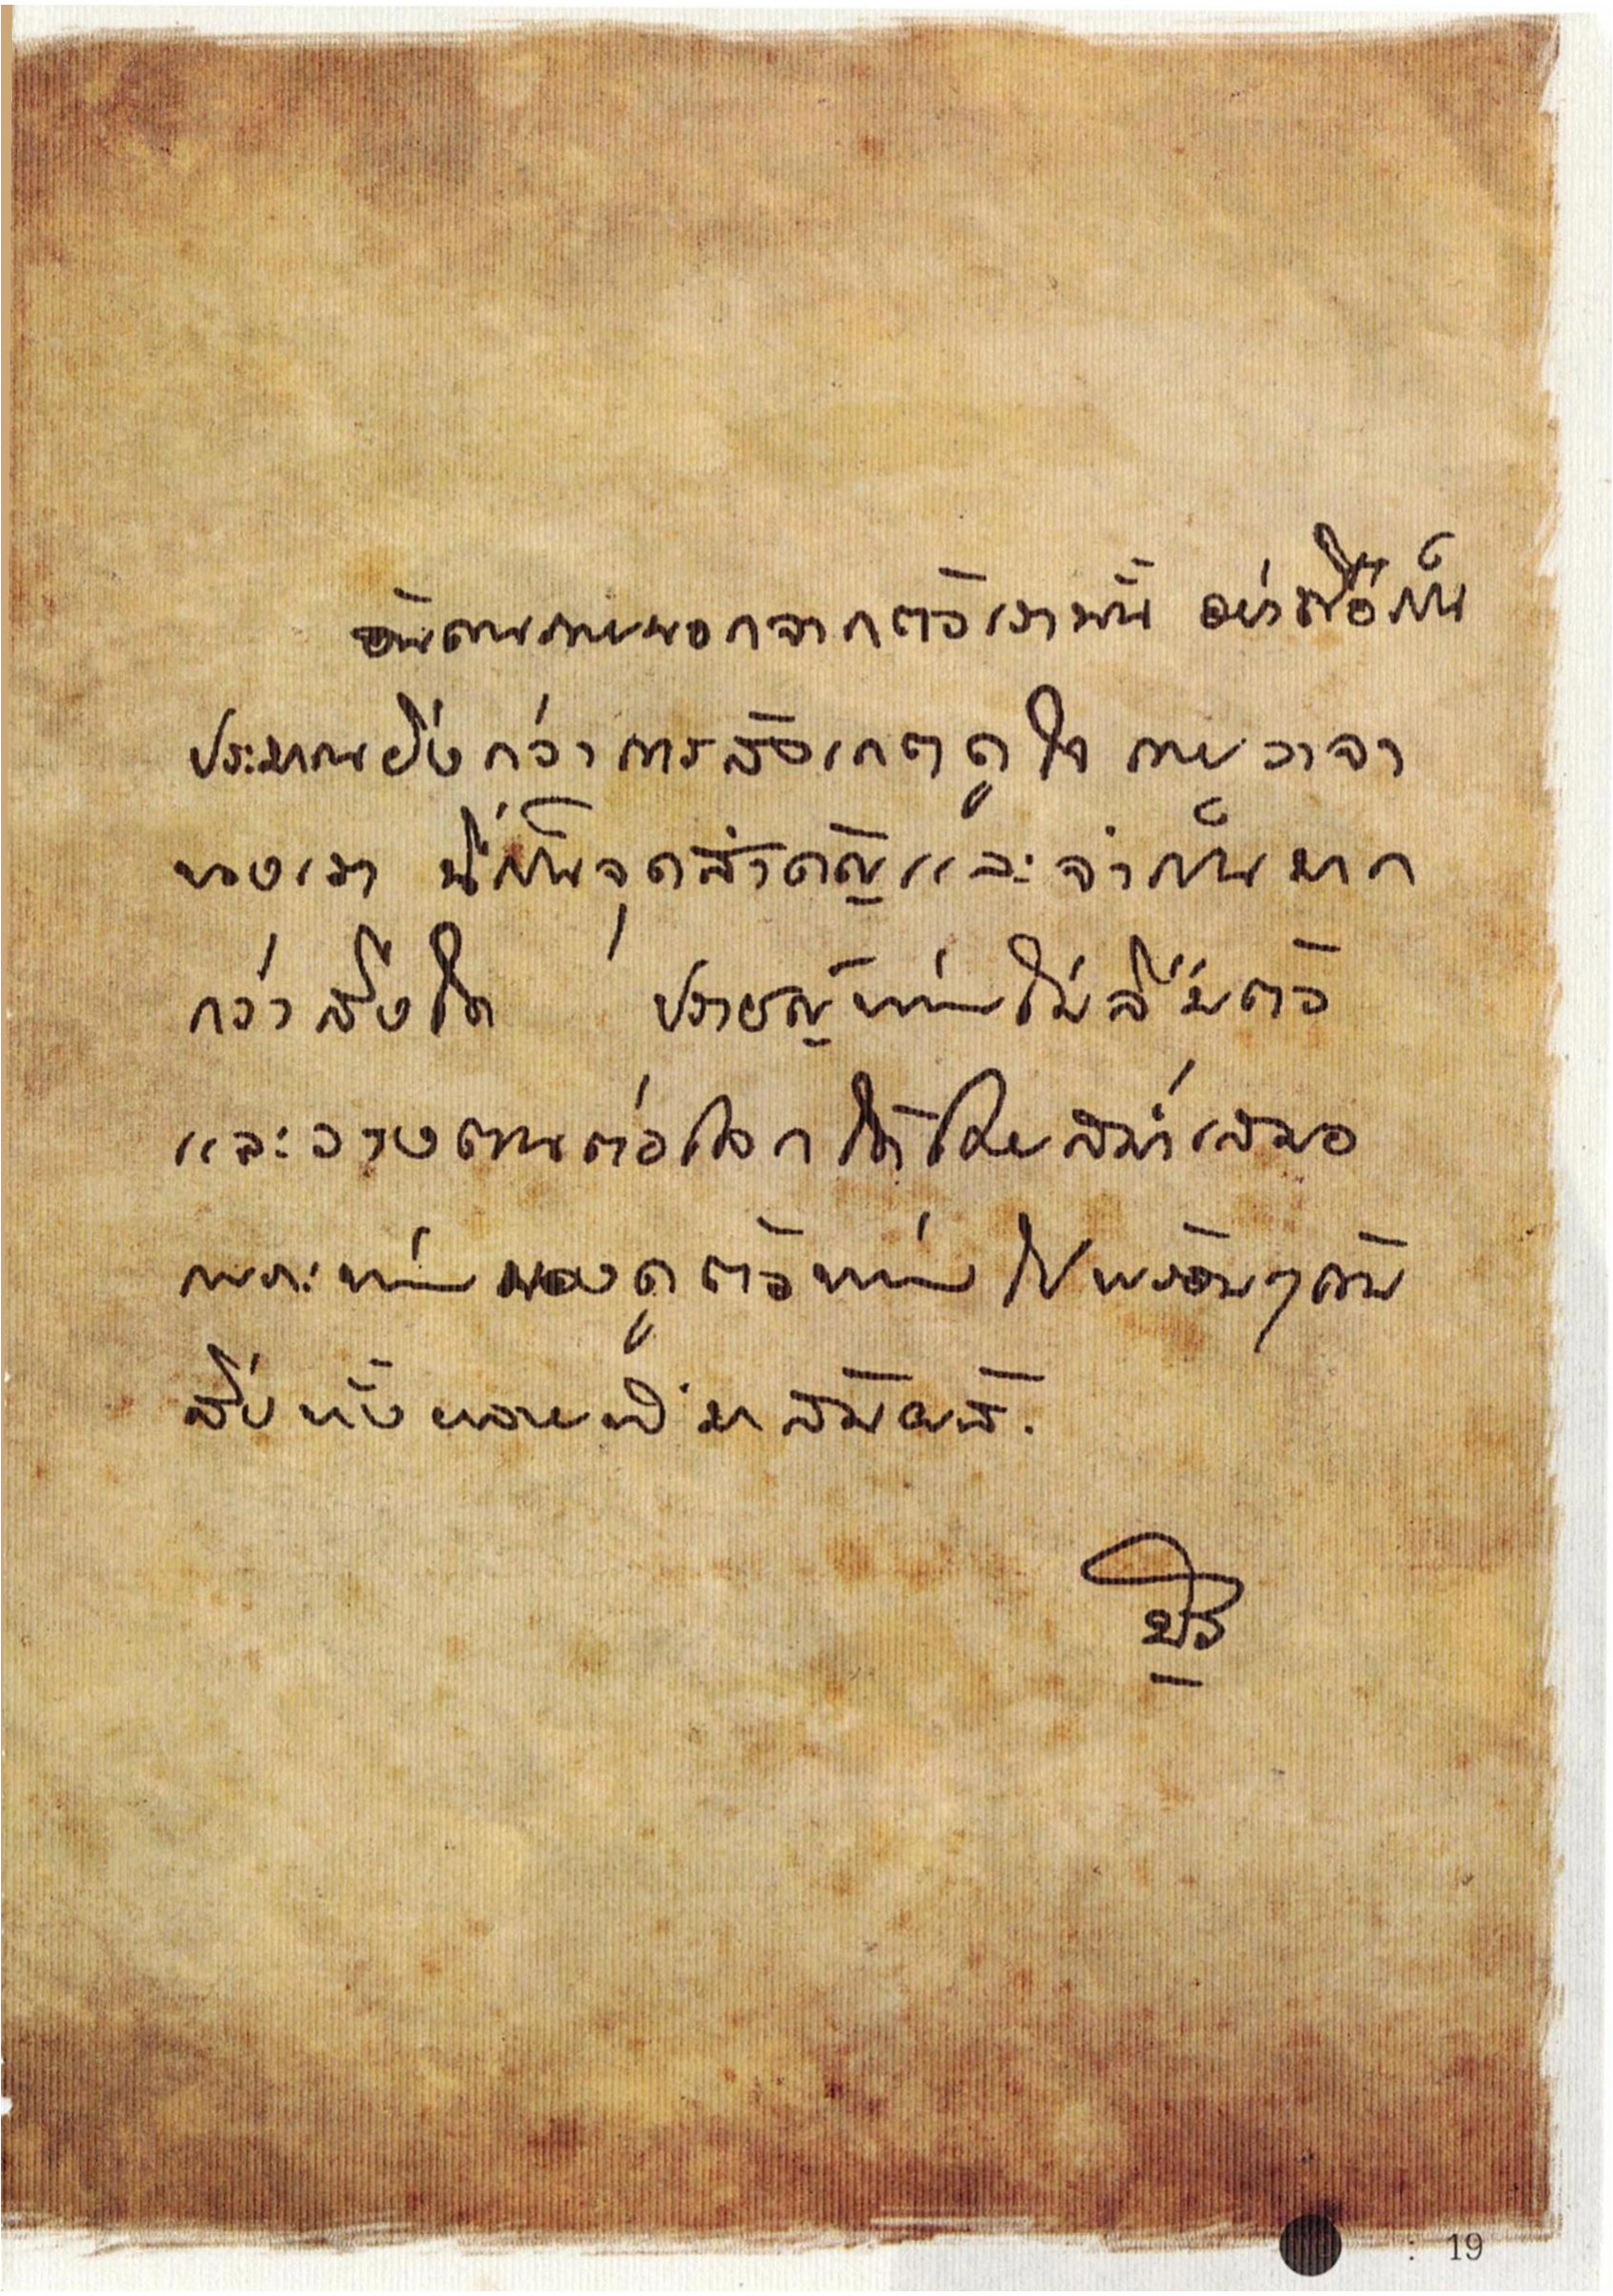 อันตรายนอกจากตัวเรานั้น อย่าถือเป็น
ประมาณยิ่งกว่าการสังเกตดูใจ กาย วาจา
ของเรา นี่เป็นจุดสำคัญและจำเป็นมาก
กว่าสิ่งใด ปราชญ์ท่านไม่ลืมตัว
และวางตนต่อโลกได้โดยสม่ำเสมอ
เพราะท่านมองดูตัวท่านไปพร้อมๆ กับ
สิ่งทั้งหลายที่มาสัมผัส.
: 19